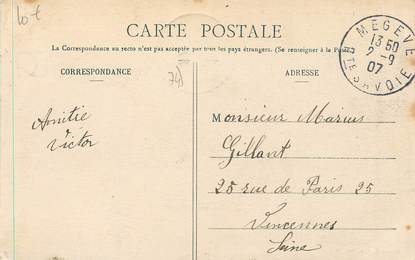 10 €
CARTE POSTALE
La Correspondance au recto n'est pas acceptée par tous les pays étrangers. (Se renseigner à la Poste
MEGÈVE
13 50
2 - 9
07
HTE SAVOIE
CORRESPONDANCE
74
ADRESSE
Amitié
Victor
Monsieur Marius
Gillant
25 rue de Paris 25
Vincennes
Seine